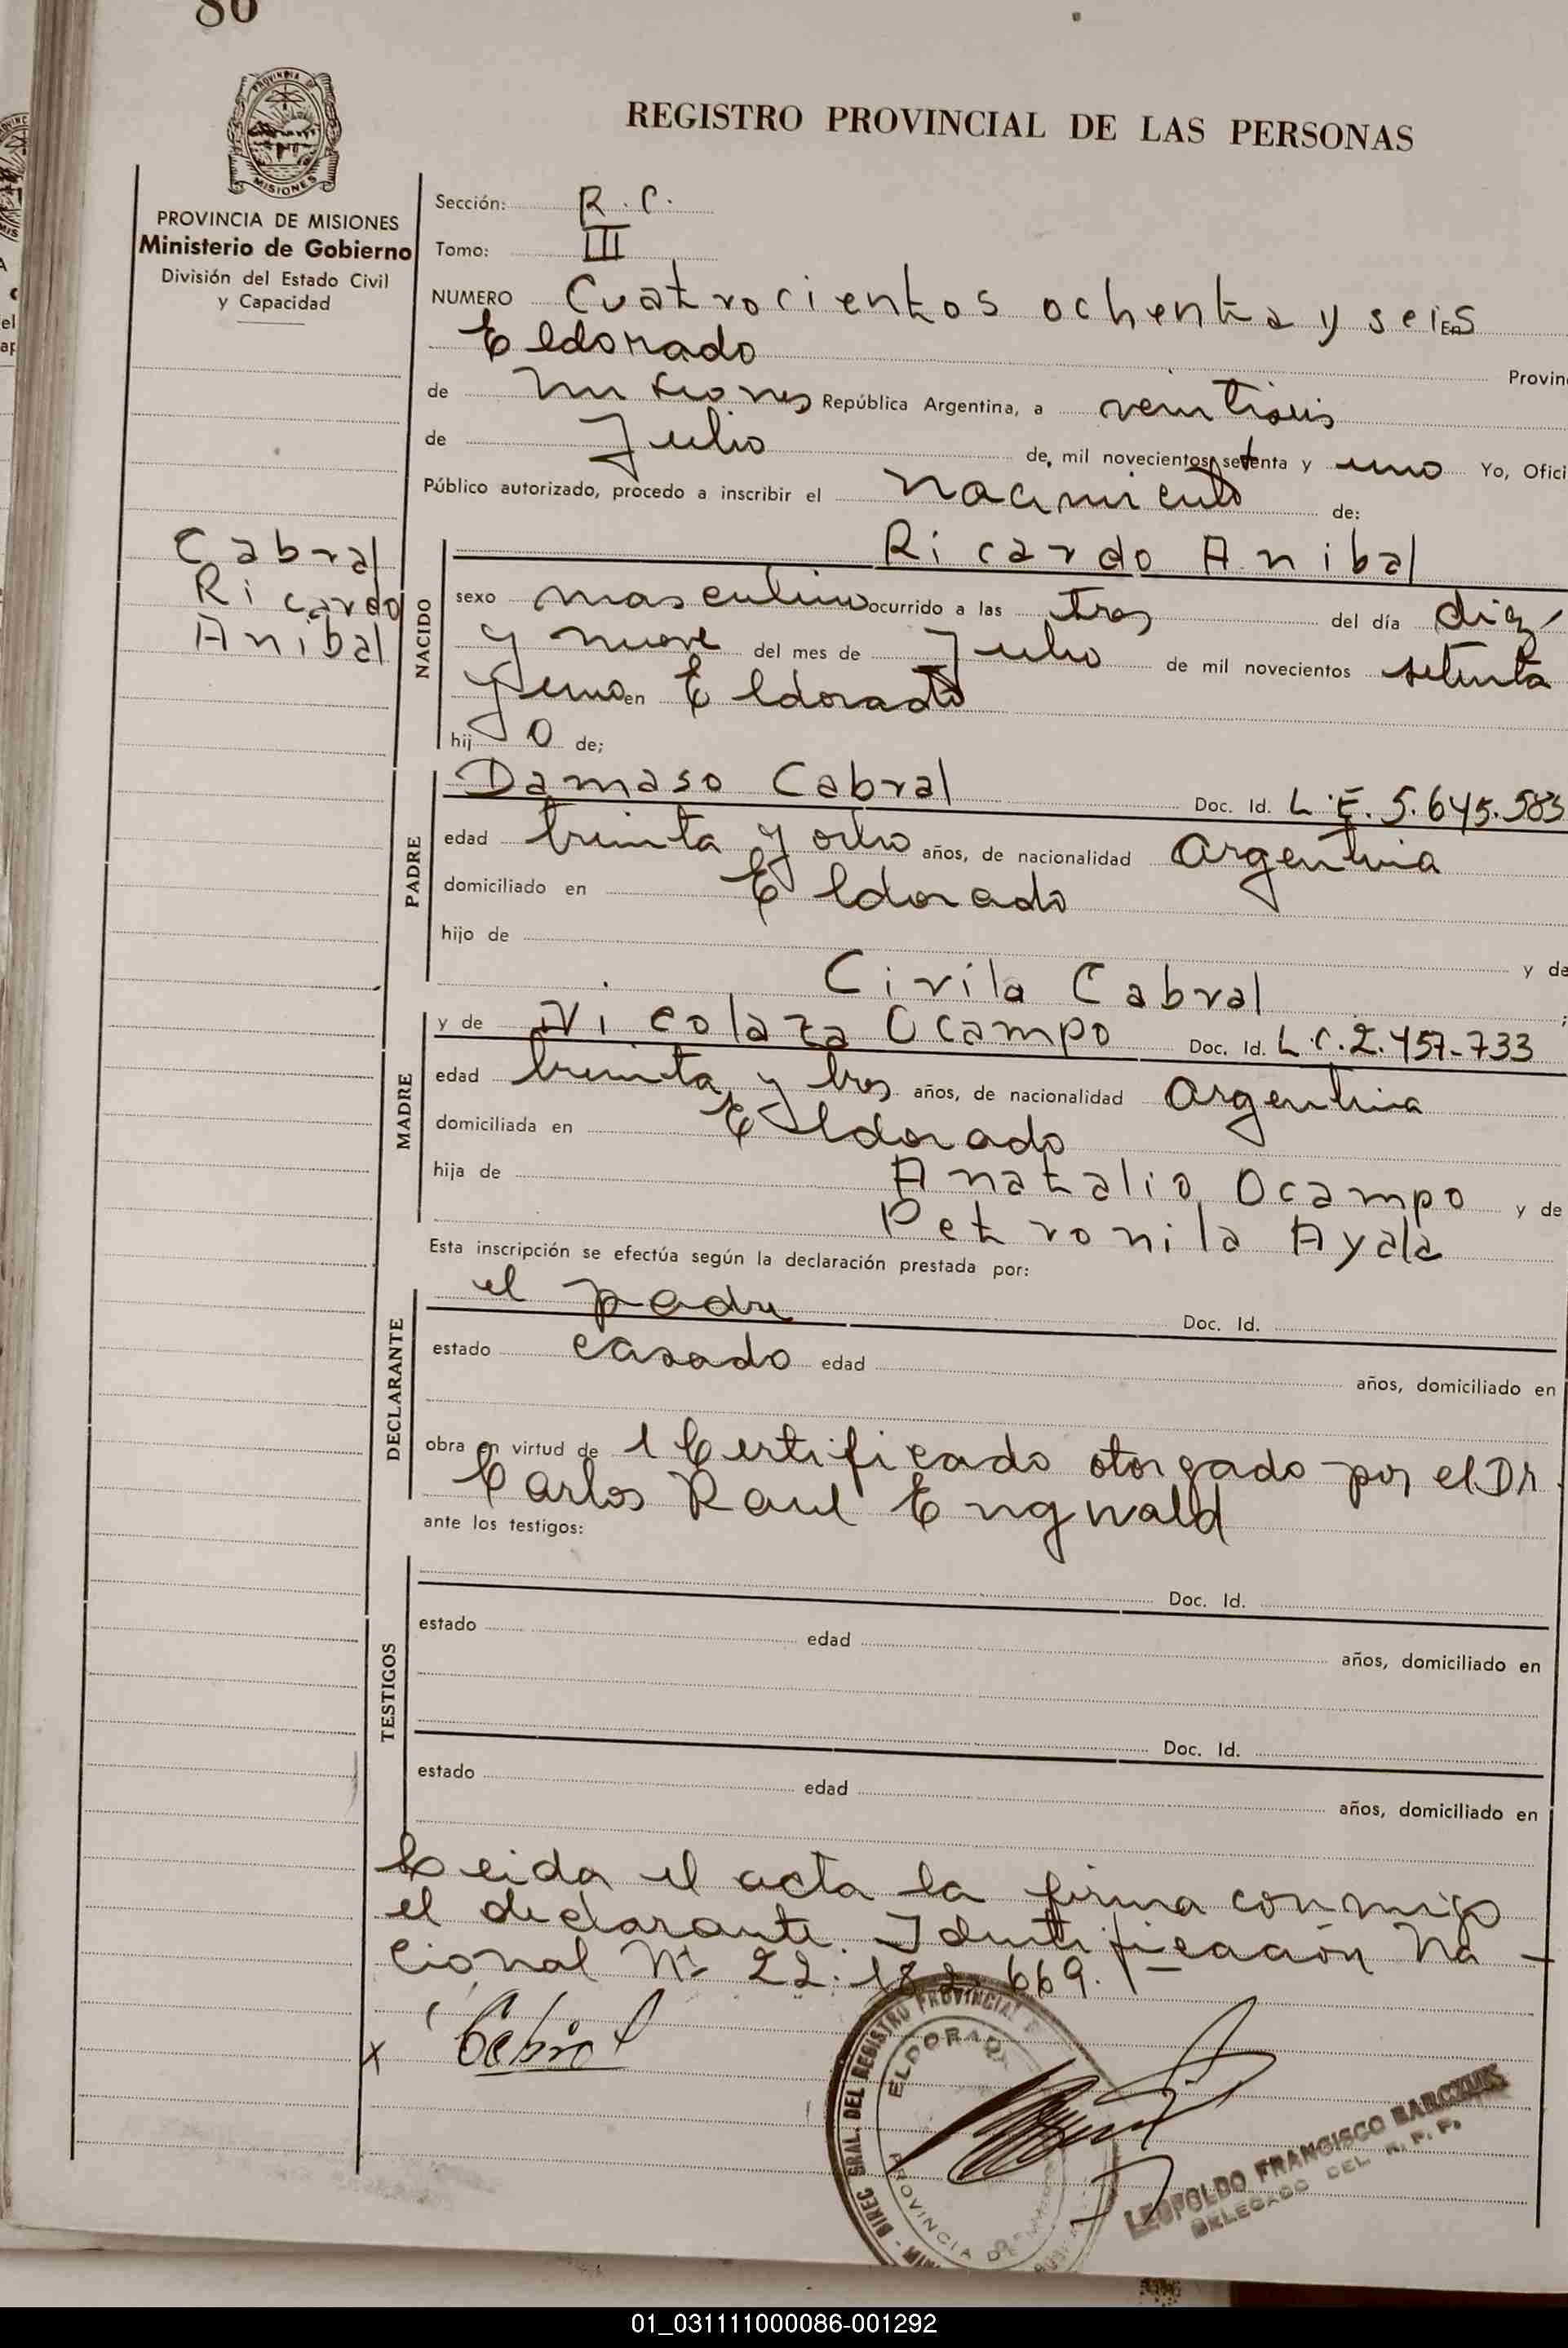 86
REGISTRO PROVINCIAL DE LAS PERSONAS
PROVINCIA DE MISIONES
Ministerio de Gobierno
División del Estado Civil
y Capacidad
Sección: R.C.
Tomo: III
NUMERO Cuatrocientos ochenta y seis En
Eldorado Provin
de Misiones República Argentina, a veintiseis
de Julio de mil novecientos setenta y uno Yo, Ofici
Público autorizado, procedo a inscribir el nacimiento de:
Cabral
Ricardo
Anibal
NACIDO
Ricardo Anibal
sexo masculino ocurrido a las tres del día diez
y nueve del mes de Julio de mil novecientos setenta
y uno en Eldorado
hij o de;
PADRE
Damaso Cabral Doc. Id. L.E. 5.645.583
edad treinta y ocho años, de nacionalidad Argentina
domiciliado en Eldorado
hijo de y de
Civila Cabral ;
MADRE
y de Nicolaza Ocampo Doc. Id. L.C. 2.457-733
edad treinta y tres años, de nacionalidad Argentina
domiciliada en Eldorado
hija de Anatalio Ocampo y de
Petronila Ayala
Esta inscripción se efectúa según la declaración prestada por:
DECLARANTE
el padre Doc. Id.
estado casado edad años, domiciliado en
obra en virtud de 1 Certificado otorgado por el Dr.
Carlos Raul Engwald
ante los testigos:
TESTIGOS
Doc. Id.
estado edad años, domiciliado en
Doc. Id.
estado edad años, domiciliado en
Leida el acta la firma conmigo
el declarante. Identificación Na-
cional Nº 22.182.669.
x Cabral
DIREC. GRAL. DEL REGISTRO PROVINCIAL D
ELDORADO
PROVINCIA DE
LEOPOLDO FRANCISCO BARCZUK
DELEGADO DEL R. P. P.
01_031111000086-001292